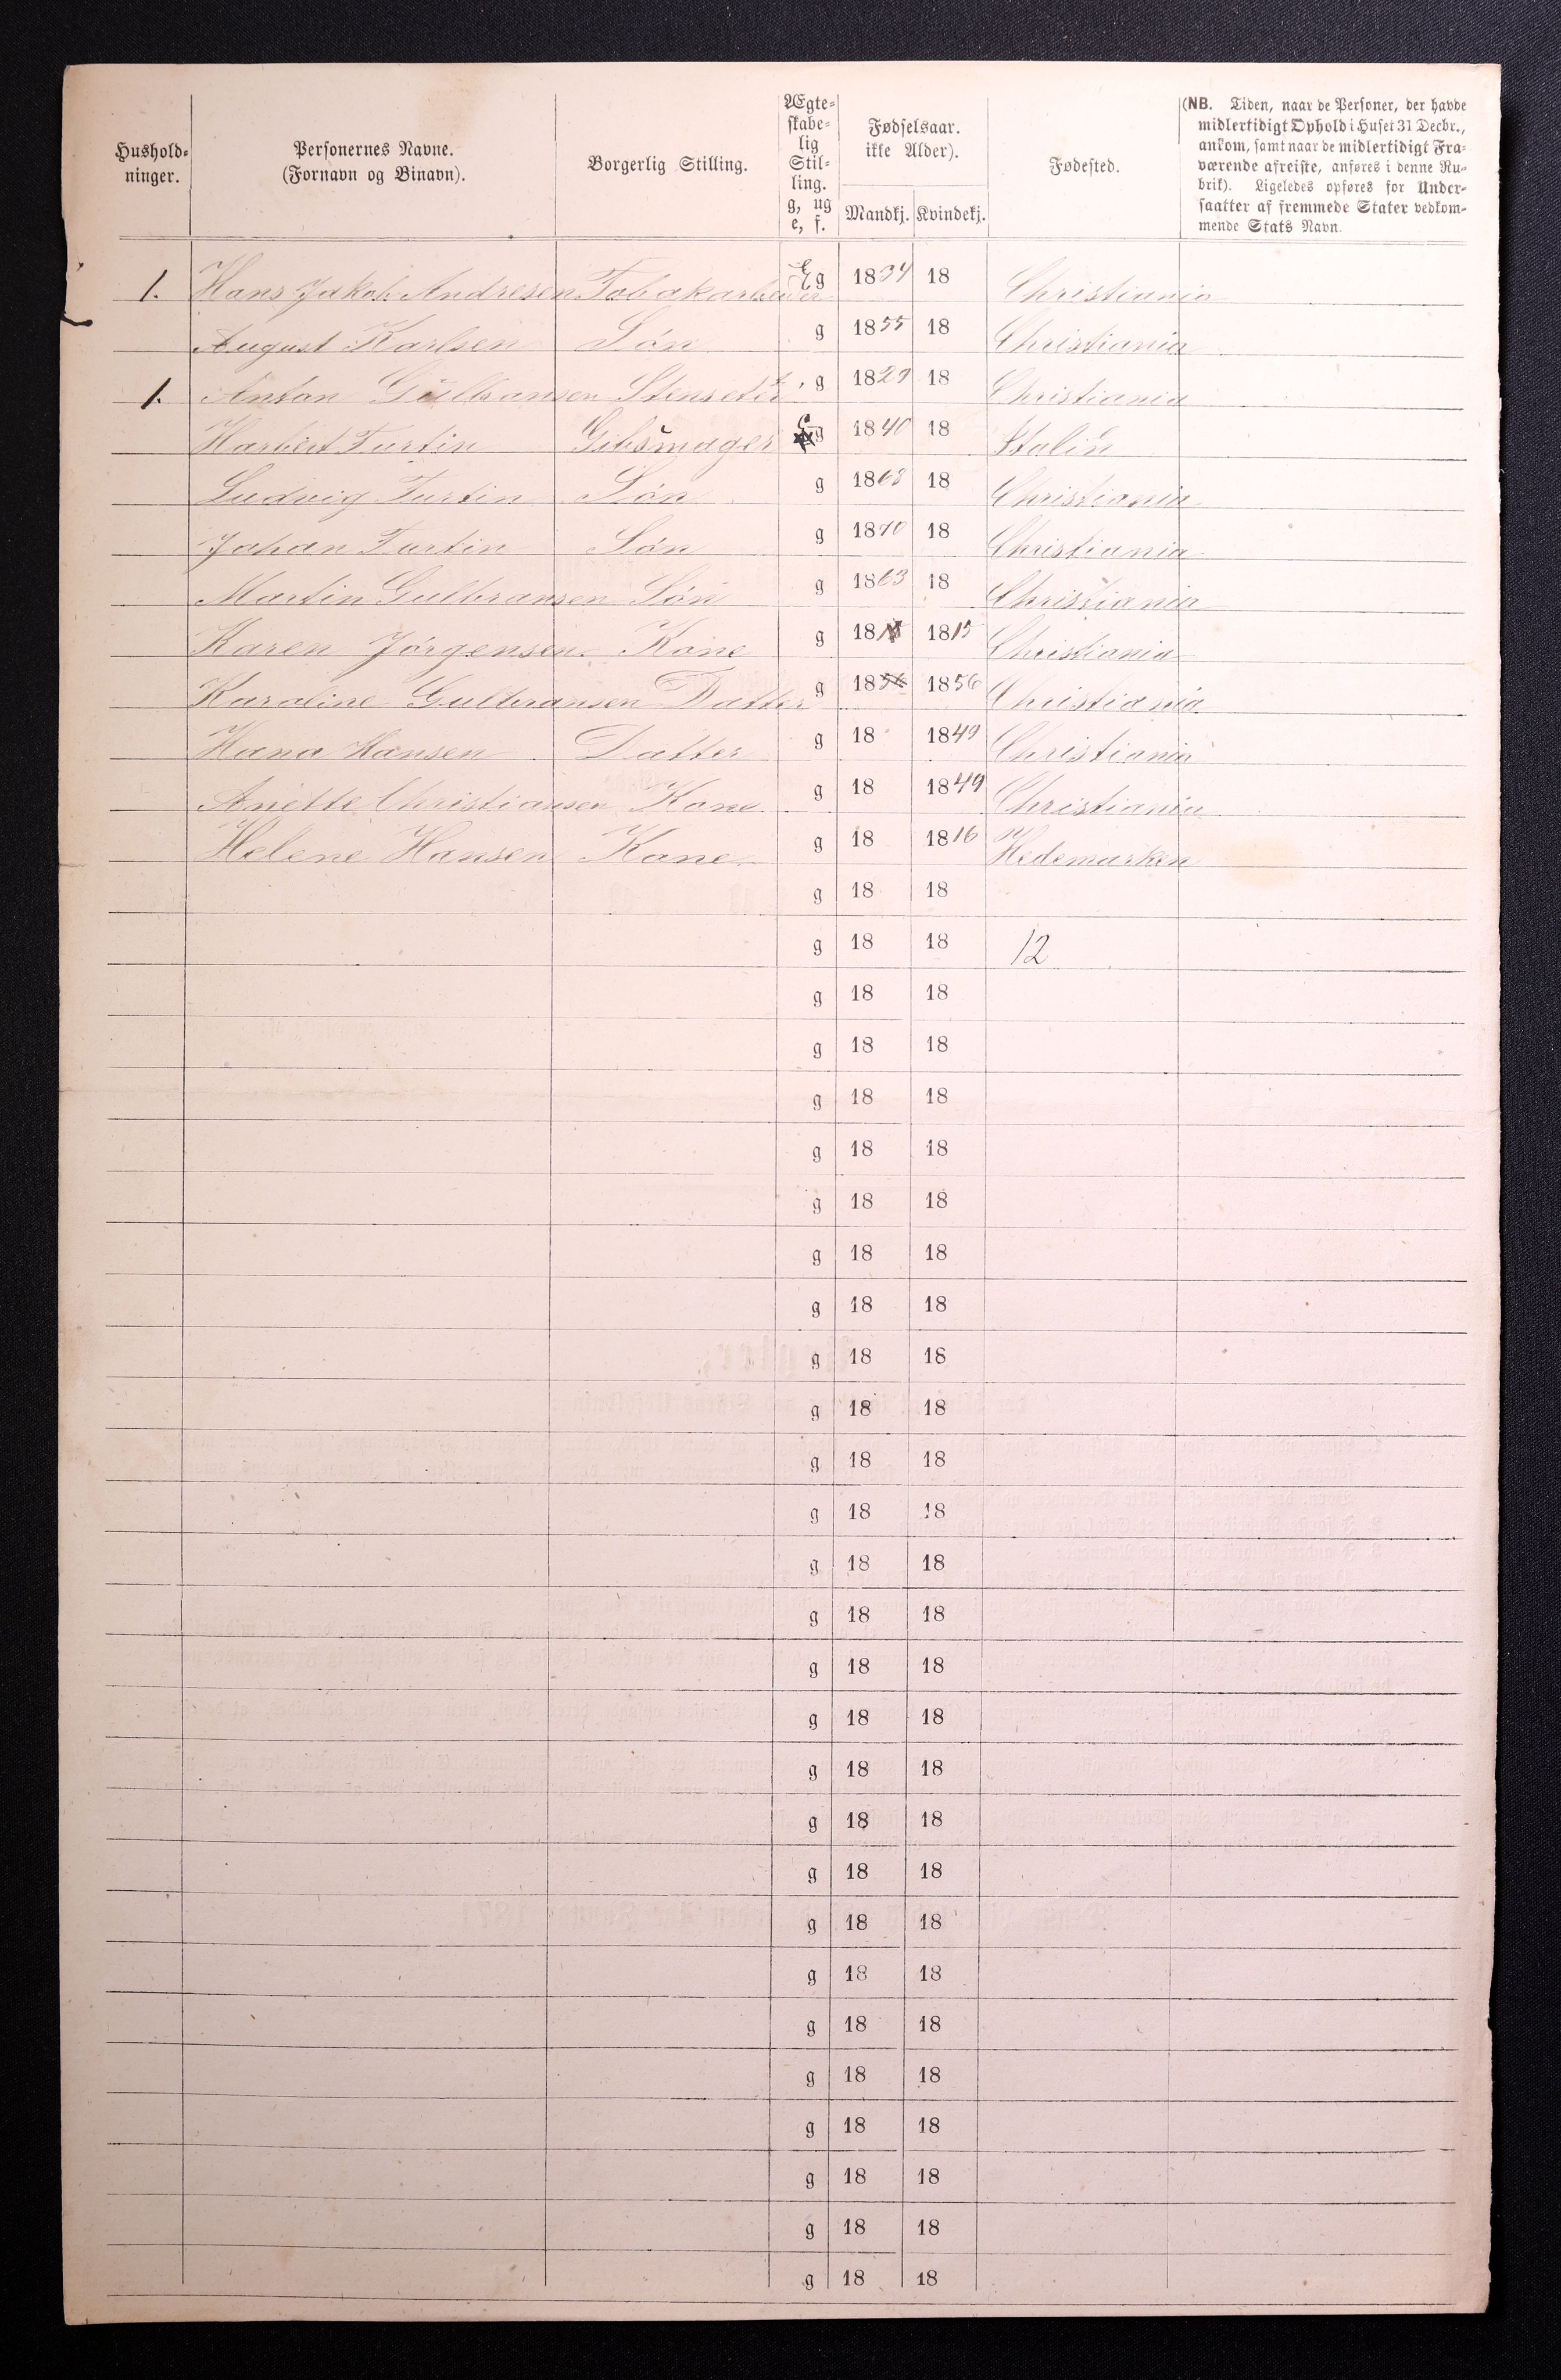 Hushold-
ninger.
Personernes Navne.
(Fornavn og Binavn).
Borgerlig Stilling.
Ægte-
skabe-
lig
Stil-
ling.
g, ug
e, f.
Fødselsaar.
ikke Alder).
Mandkj. Kvindekj.
Fødested.
(NB. Tiden, naar de Personer, der havde
midlertidigt Ophold i Huset 31 Decbr.,
ankom, samt naar de midlertidigt Fra-
værende afreiste, anføres i denne Ru-
brik). Ligeledes opføres for Under-
saatter af fremmede Stater vedkom-
mende Stats Navn.
1. Hans Jakob Andresen Tobakarbeider g 1834 18 Christiania
August Karlsen Søn g 1855 18 Christiania
1. Anton Gulbransen g 1829 18 Christiania
Turtin Gibsmager g 1840 18 Italin
Ludvig Turtin Søn g 1868 18 Christiania
Johan Turtin Søn g 1870 18 Christiania
Martin Gulbransen Søn g 1863 18 Christiania
Karen Jørgensen Kone g 18 1815 Christiania
Karoline Gulbransen Datter g 1856 1856 Christiania
Hana Hansen Datter g 18 1849 Christiania
Anette Christiansen Kone g 18 1849 Christiania
Helene Hansen Kone g 18 1816 Hedemarken
g 18 18
g 18 18 12
g 18 18
g 18 18
g 18 18
g 18 18
g 18 18
g 18 18
g 18 18
g 18 18
g 18 18
g 18 18
g 18 18
g 18 18
g 18 18
g 18 18
g 18 18
g 18 18
g 18 18
g 18 18
g 18 18
g 18 18
g 18 18
g 18 18
g 18 18
g 18 18
g 18 18
g 18 18